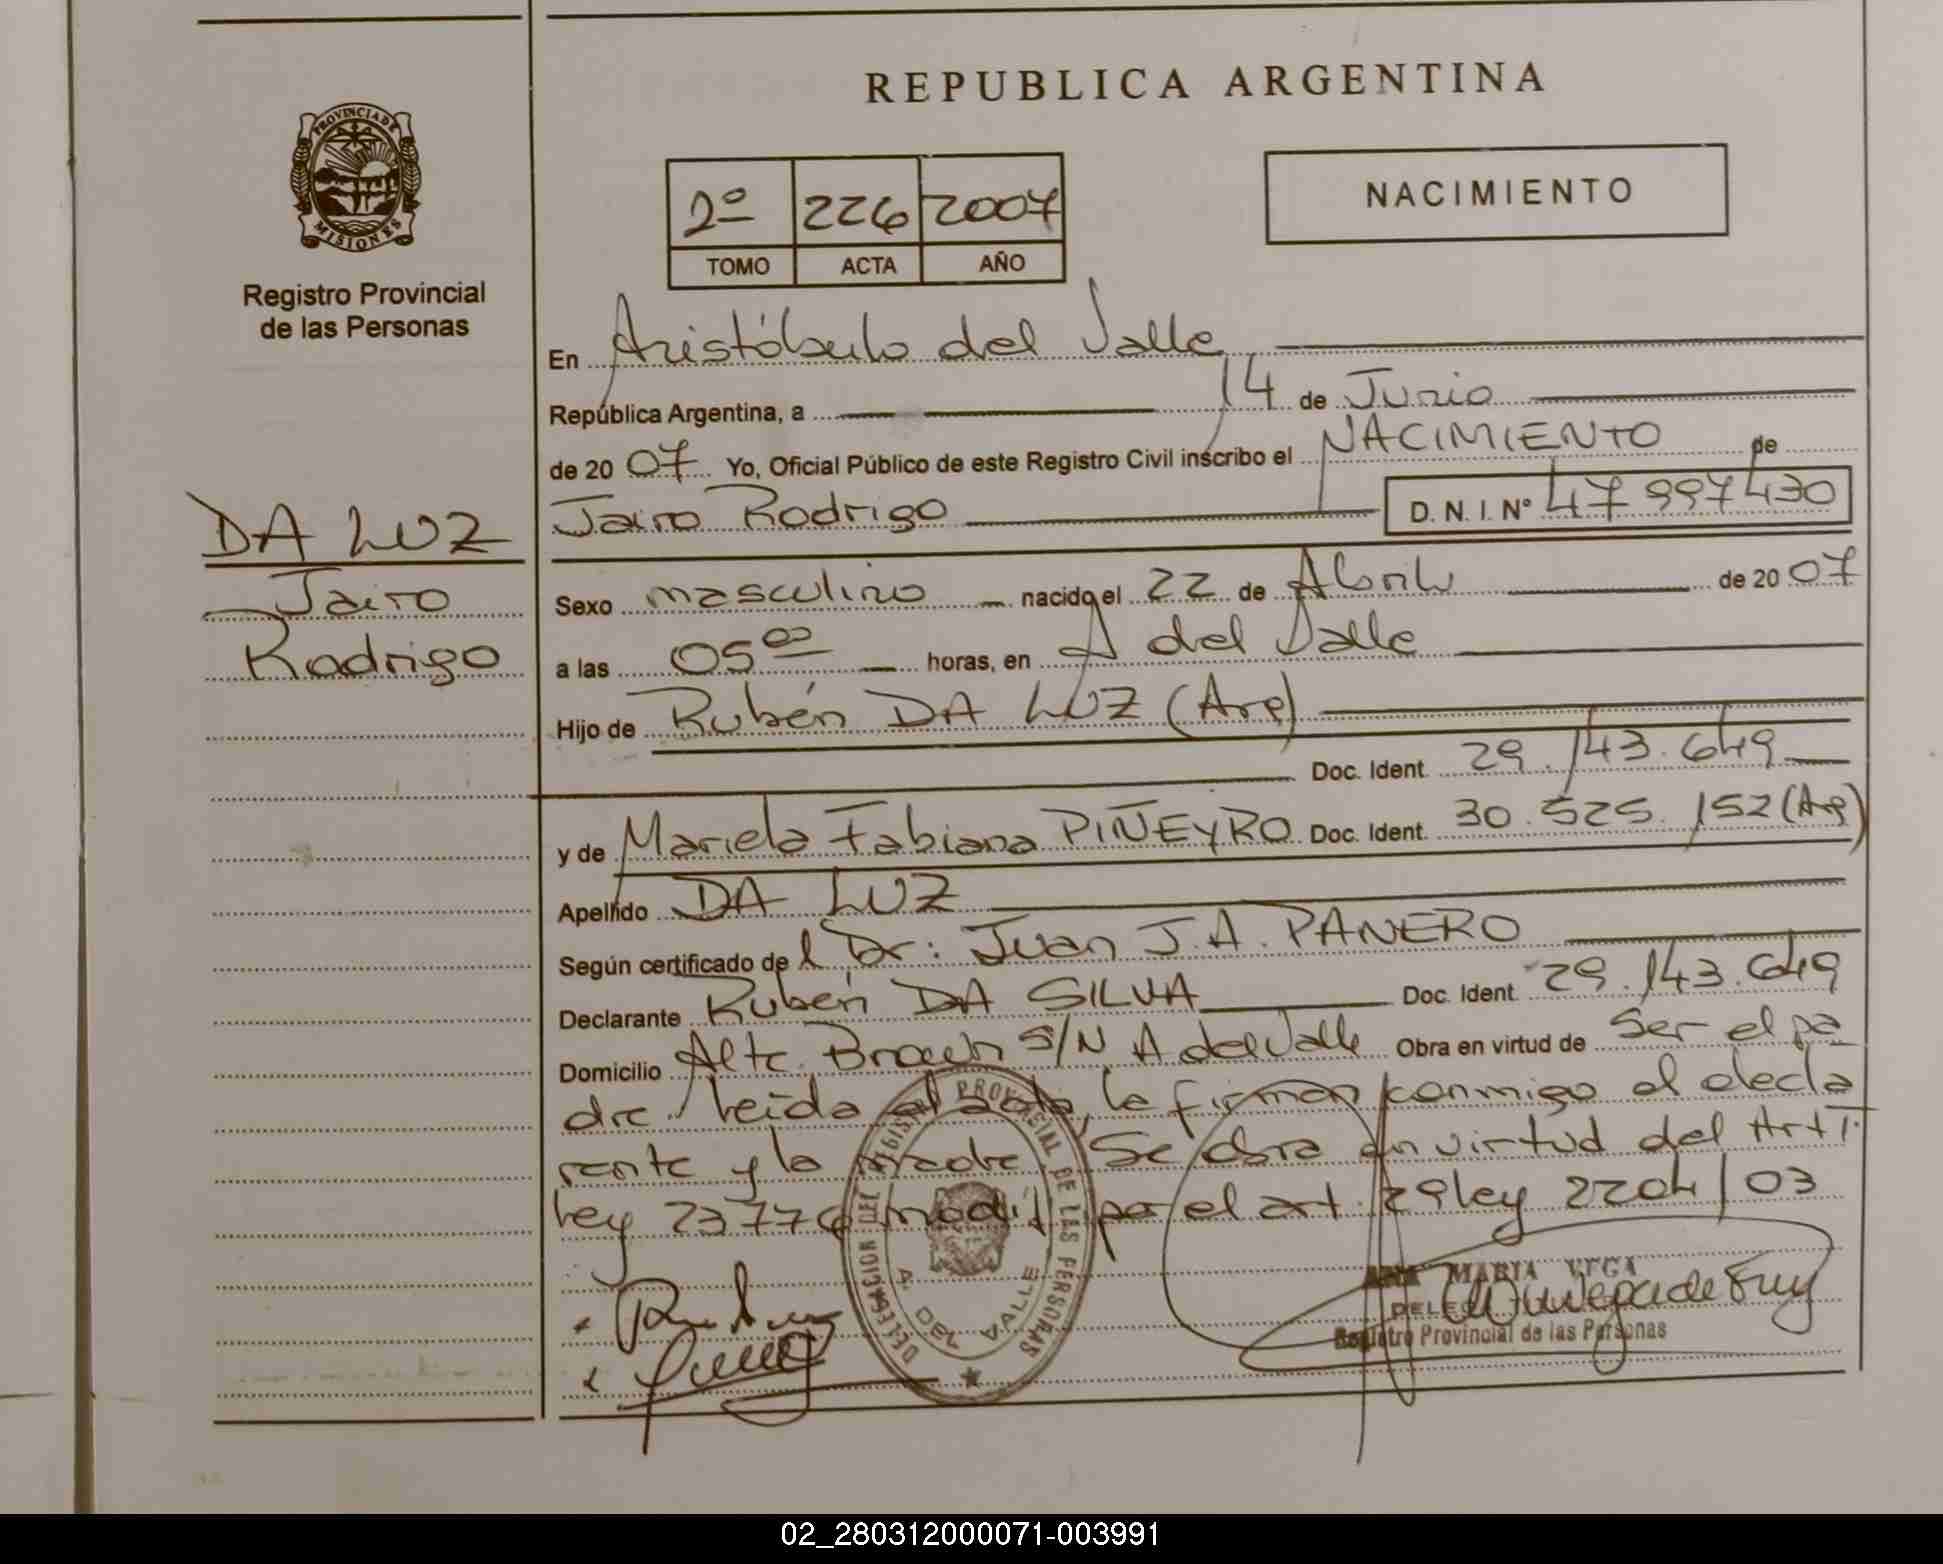 REPUBLICA ARGENTINA
PROVINCIA DE
MISIONES
Registro Provincial
de las Personas
NACIMIENTO
2º 226 2007
TOMO ACTA AÑO
En Aristóbulo del Valle
República Argentina, a 14 de Junio
de 20 07 Yo, Oficial Público de este Registro Civil inscribo el NACIMIENTO de
Jairo Rodrigo D. N. I. Nº 47 997430
DA LUZ
Jairo
Rodrigo
Sexo masculino nacido el 22 de Abril de 20 07
a las 05 00 horas, en A del Valle
Hijo de Rubén DA LUZ (Arg)
Doc. Ident. 29.143.649
y de Mariela Fabiana PIÑEYRO Doc. Ident. 30.525.152 (Arg)
Apellido DA LUZ
Según certificado del Dr: Juan J.A. PANERO
Declarante Rubén DA SILVA Doc. Ident. 29.143.649
Domicilio Alte. Brown S/N A del Valle Obra en virtud de Ser el pa
dre. leida el acta, la firman conmigo el decla
rante y la madre. Se obra en virtud del Art 1º
ley 23776 modif por el art. 29 ley 2204/03
DELEGACION DEL REGISTRO PROVINCIAL DE LAS PERSONAS
A. DEL VALLE
ANA MARIA VEGA
Registro Provincial de las Personas
02_280312000071-003991